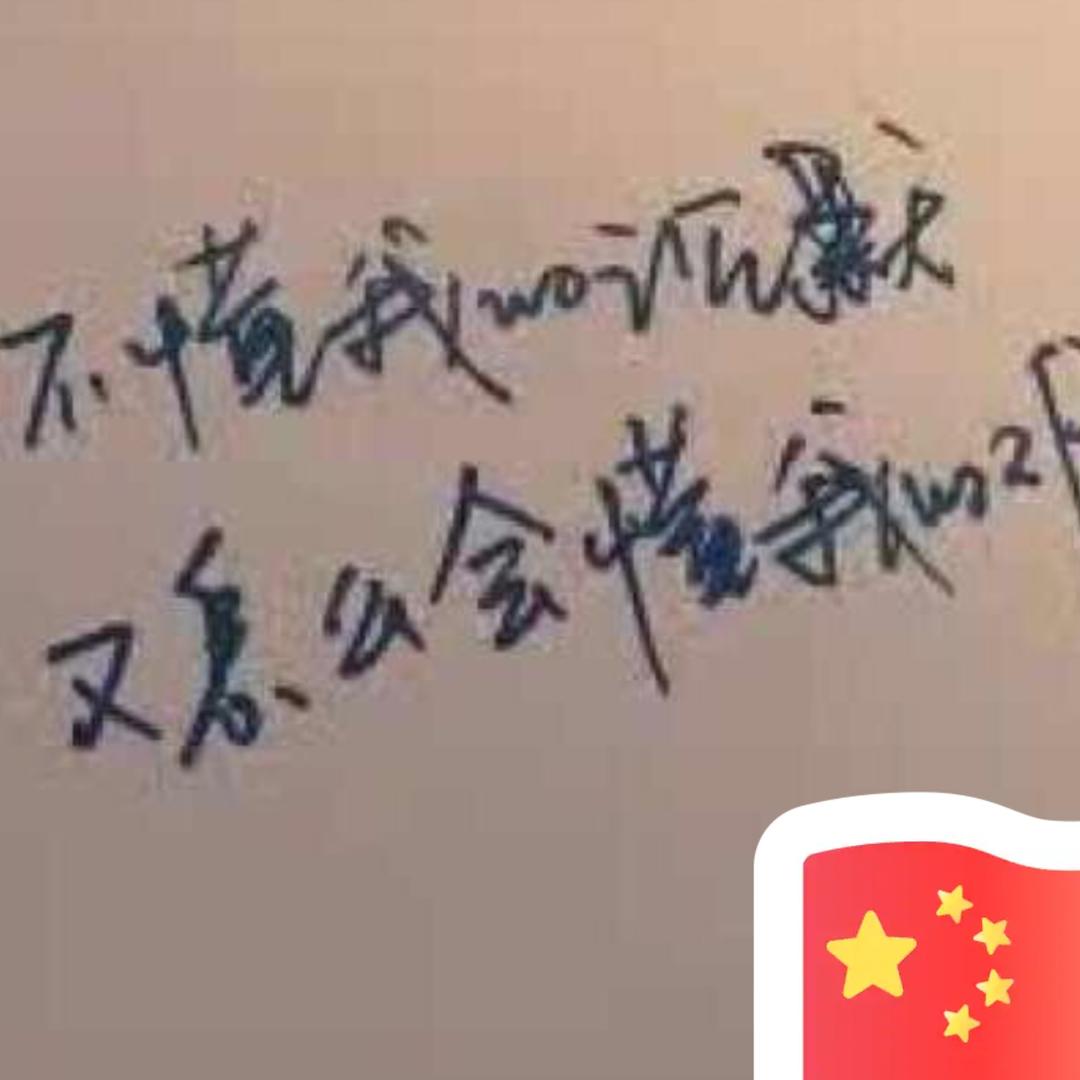 不懂我的沉默
又怎么会懂我的